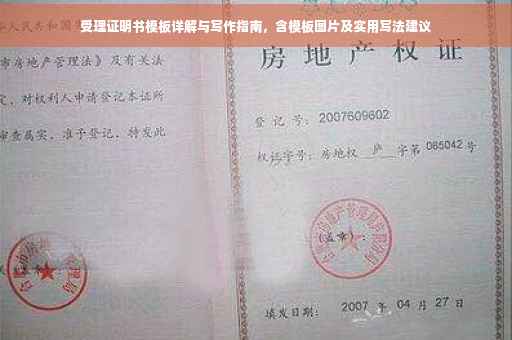 受理证明书模板详解与写作指南，含模板图片及实用写法建议
人民共和国
市房地产管理法》及有关法
定，对权利人申请登记本证所
审查属实，准予登记，特发此
房地产权证
登记号：2007609602
权证字号：房地权 庐 字第 065042 号
(盖章)：
填发日期：2007 年 04 月 27 日